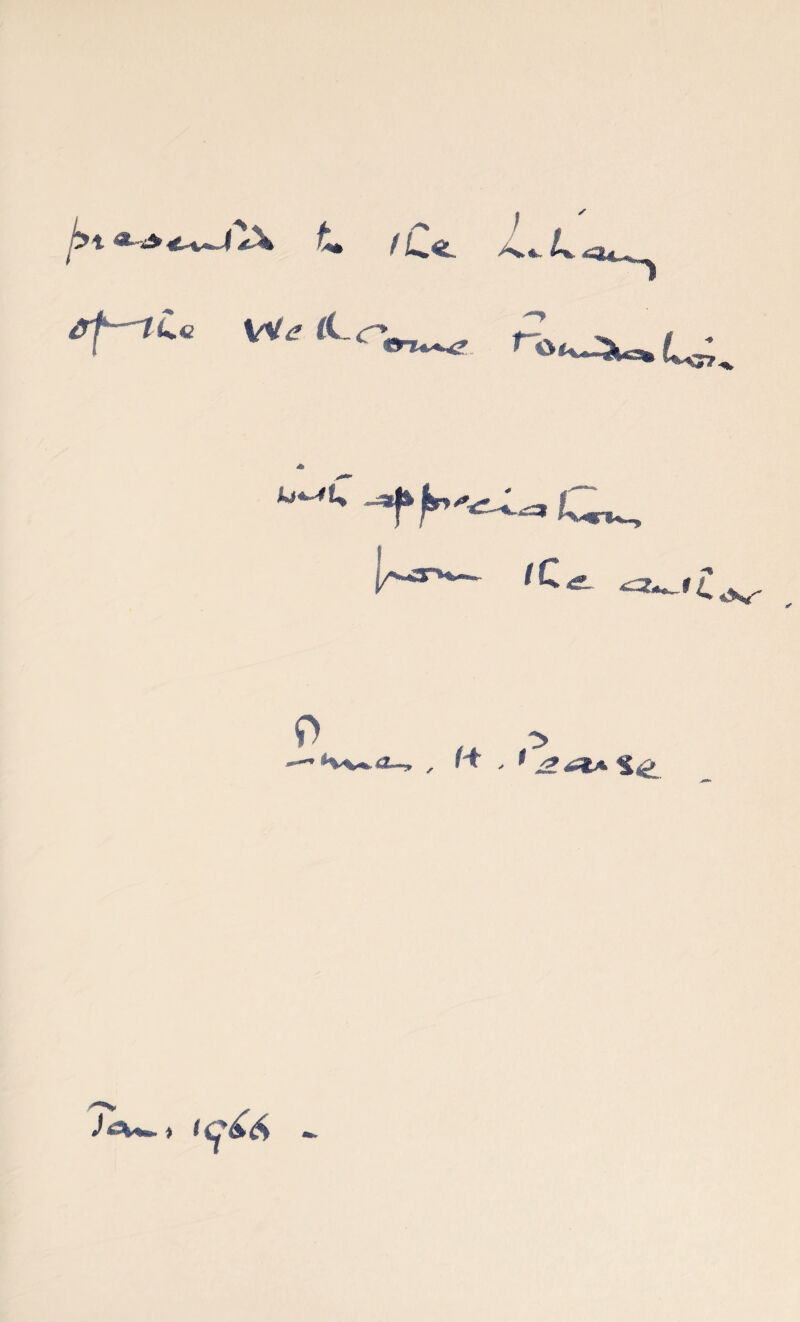 presented to the Library
of the Wellcome Foundation
with appreciation
from the author.
Innes, H. Pearse.
Jan, 1966 -